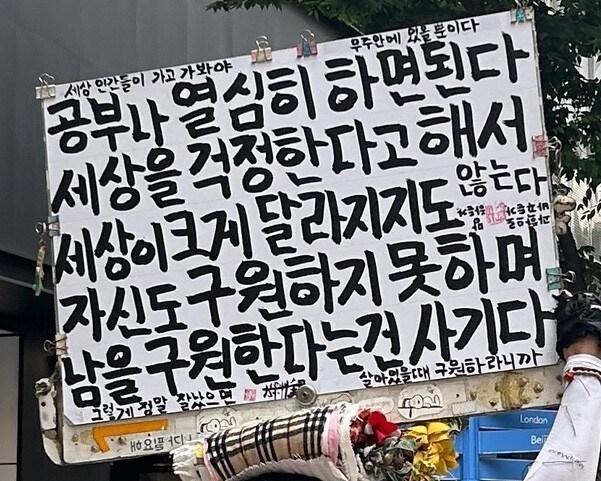 세상 인간들이 가고 가봐야 우주안에 있을 뿐이다
공부나 열심히 하면된다
세상을 걱정한다고 해서
세상이 크게 달라지지도 않는다
자신도 구원하지 못하며
남을 구원한다는건 사기다
그렇게 정말 잘났으면 살아있을때 구원하라니까
London